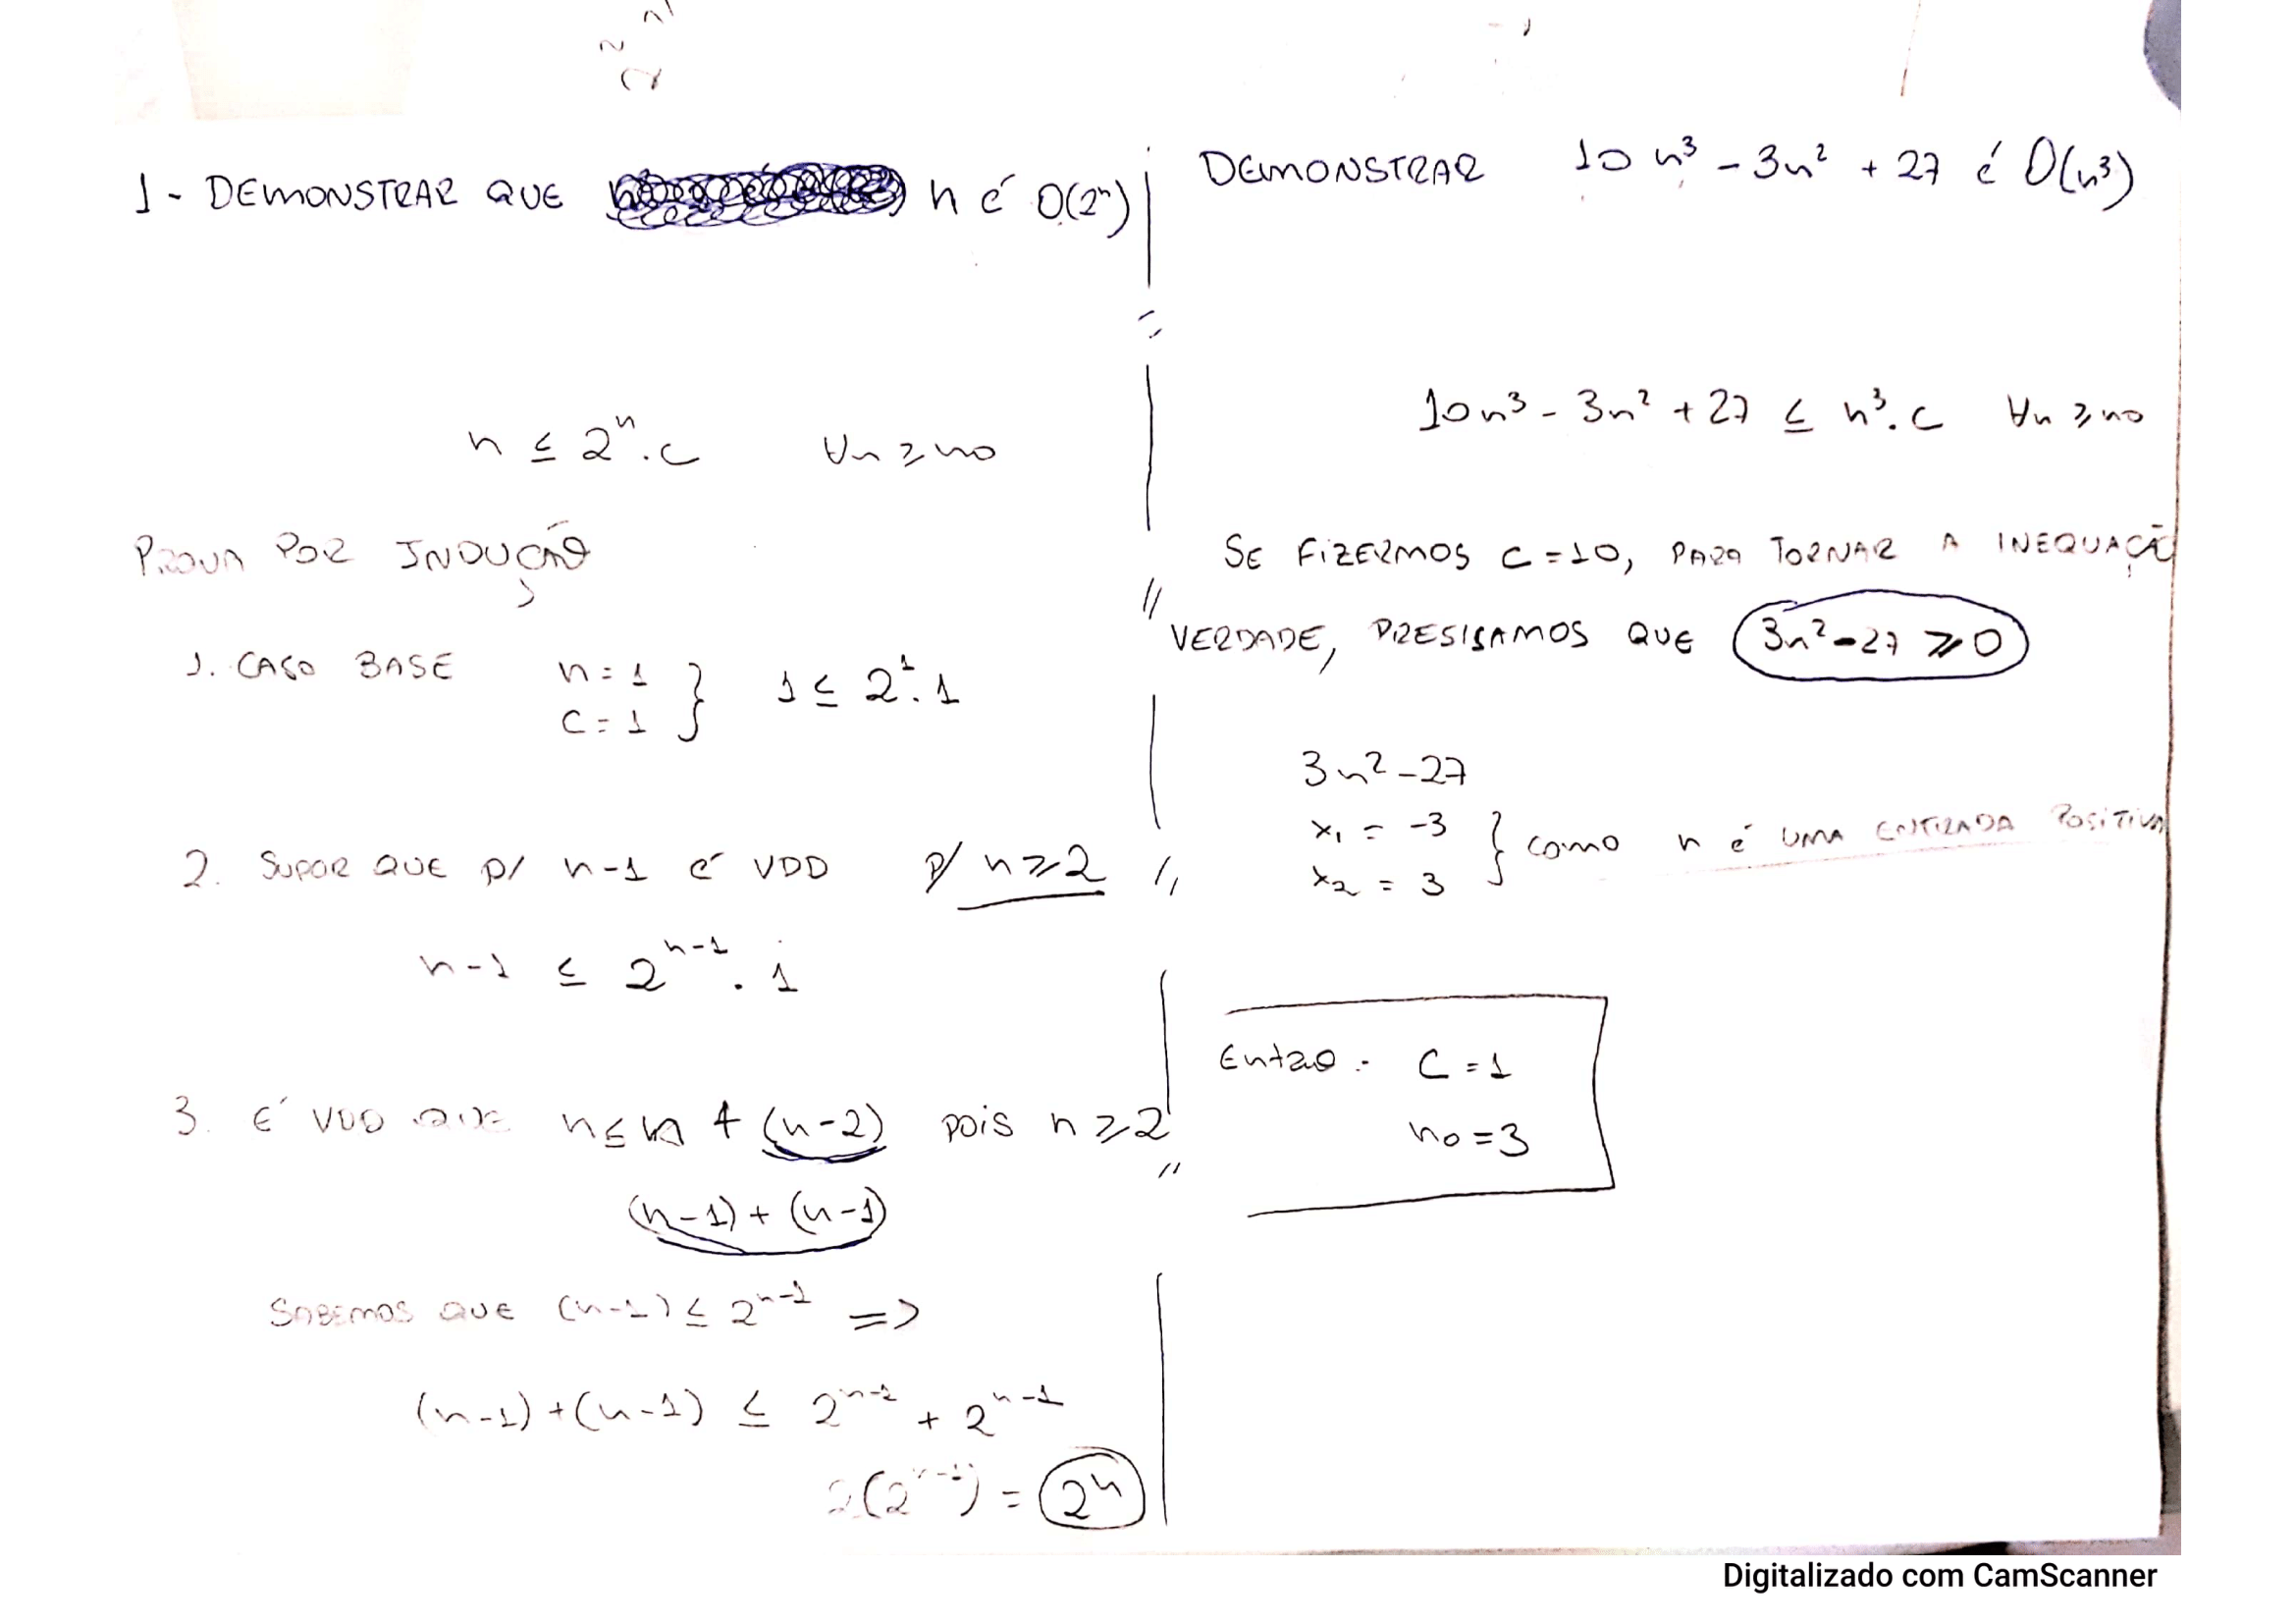 1 - DEMONSTRAR QUE n é O(2ⁿ)
n ≤ 2ⁿ.c ∀n ≥ no
PROVA POR INDUÇÃO
1. CASO BASE n = 1
c = 1 } 1 ≤ 2¹.1
2. SUPOR QUE p/ n-1 É VDD p/ n ≥ 2
n-1 ≤ 2ⁿ⁻¹ . 1
3. É VDD QUE n ≤ n + (n-2) pois n ≥ 2
(n-1) + (n-1)
SABEMOS QUE (n-1) ≤ 2ⁿ⁻¹ =>
(n-1) + (n-1) ≤ 2ⁿ⁻¹ + 2ⁿ⁻¹
2(2ⁿ⁻¹) = 2ⁿ
DEMONSTRAR 10n³ - 3n² + 27 é O(n³)
10n³ - 3n² + 27 ≤ n³.c ∀n ≥ no
SE FIZERMOS C = 10, PARA TORNAR A INEQUAÇÃO
VERDADE, PRESISAMOS QUE 3n² - 27 ≥ 0
3n² - 27
x₁ = -3
x₂ = 3 } como n é UMA ENTRADA POSITIVA
Entao: C = 1
no = 3
Digitalizado com CamScanner